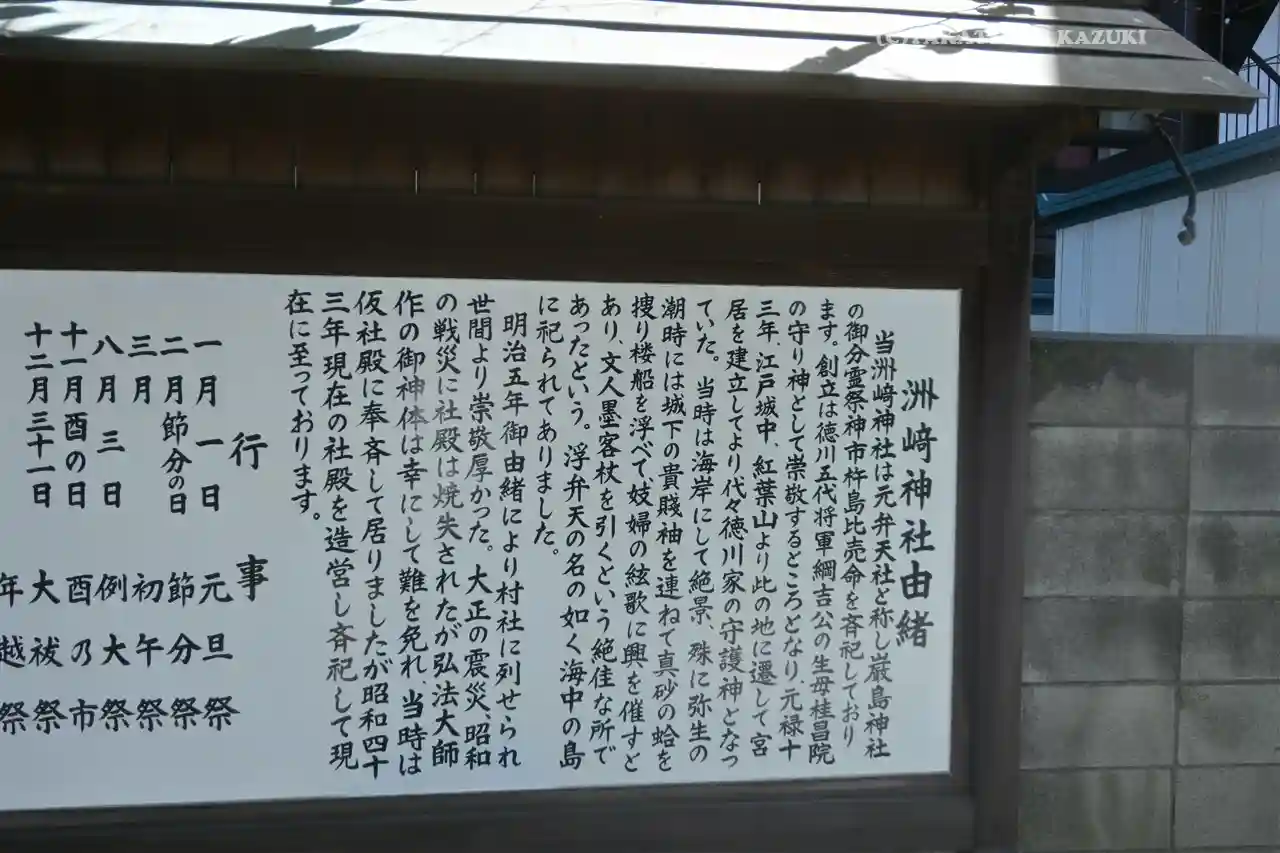 洲﨑神社由緒
当洲﨑神社は元弁天社と称し厳島神社
の御分霊祭神市杵島比売命を斉祀しており
ます。創立は徳川五代将軍綱吉公の生母桂昌院
の守り神として崇敬するところとなり、元禄十
三年、江戸城中、紅葉山より此の地に遷して宮
居を建立してより代々徳川家の守護神となっ
ていた。当時は海岸にして絶景、殊に弥生の
潮時には城下の貴賤袖を連ねて真砂の蛤を
捜り楼船を浮べて、妓婦の絃歌に興を催すと
あり、文人墨客杖を引くという絶佳な所で
あったという。浮弁天の名の如く海中の島
に祀られてありました。
明治五年御由緒により村社に列せられ
世間より崇敬厚かった。大正の震災、昭和
の戦災に社殿は焼失されたが弘法大師
作の御神体は幸にして難を免れ、当時は
仮社殿に奉斉して居りましたが昭和四十
三年現在の社殿を造営し斉祀して現
在に至っております。
行事
一月一日 元旦祭
二月節分の日 節分祭
三月 初午祭
八月三日 例大祭
十一月酉の日 酉の市
大祓祭
十二月三十一日 年越祭
KAZUKI